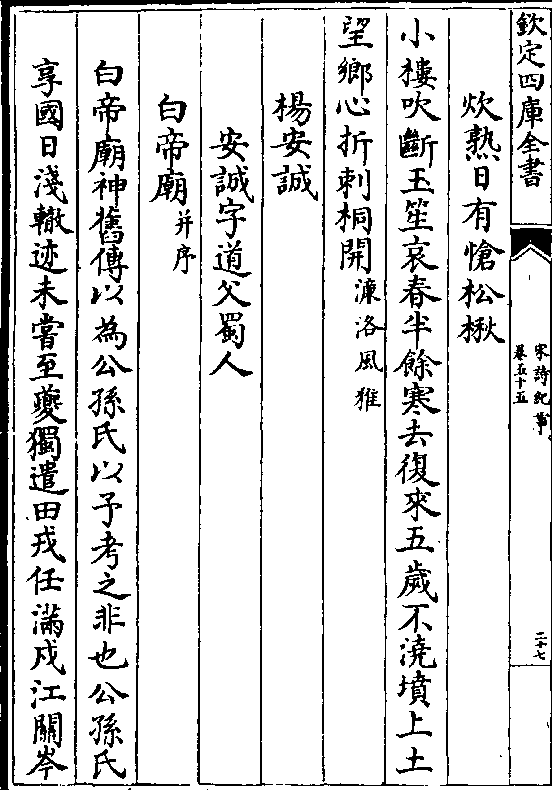 欽定四庫全書
宋詩紀事
卷五十五
二十七
炊熟日有愴松楸
小樓吹斷玉笙哀春半餘寒去復來五歲不澆墳上土
望鄉心折刺桐開濂洛風雅
楊安誠
安誠字道父蜀人
白帝廟并序
白帝廟神舊傳以為公孫氏以予考之非也公孫氏
享國日淺轍迹未嘗至夔獨遣田戎任滿戍江關岑